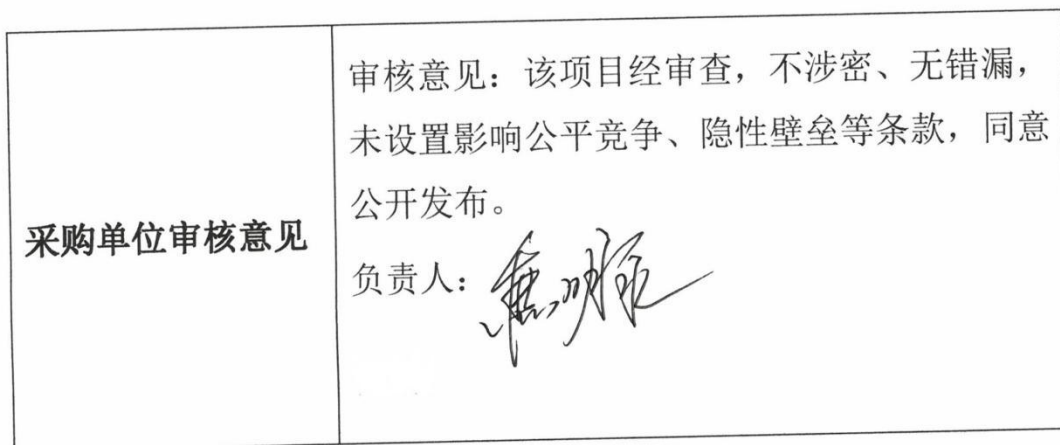 采购单位审核意见
审核意见：该项目经审查，不涉密、无错漏，
未设置影响公平竞争、隐性壁垒等条款，同意
公开发布。
负责人：